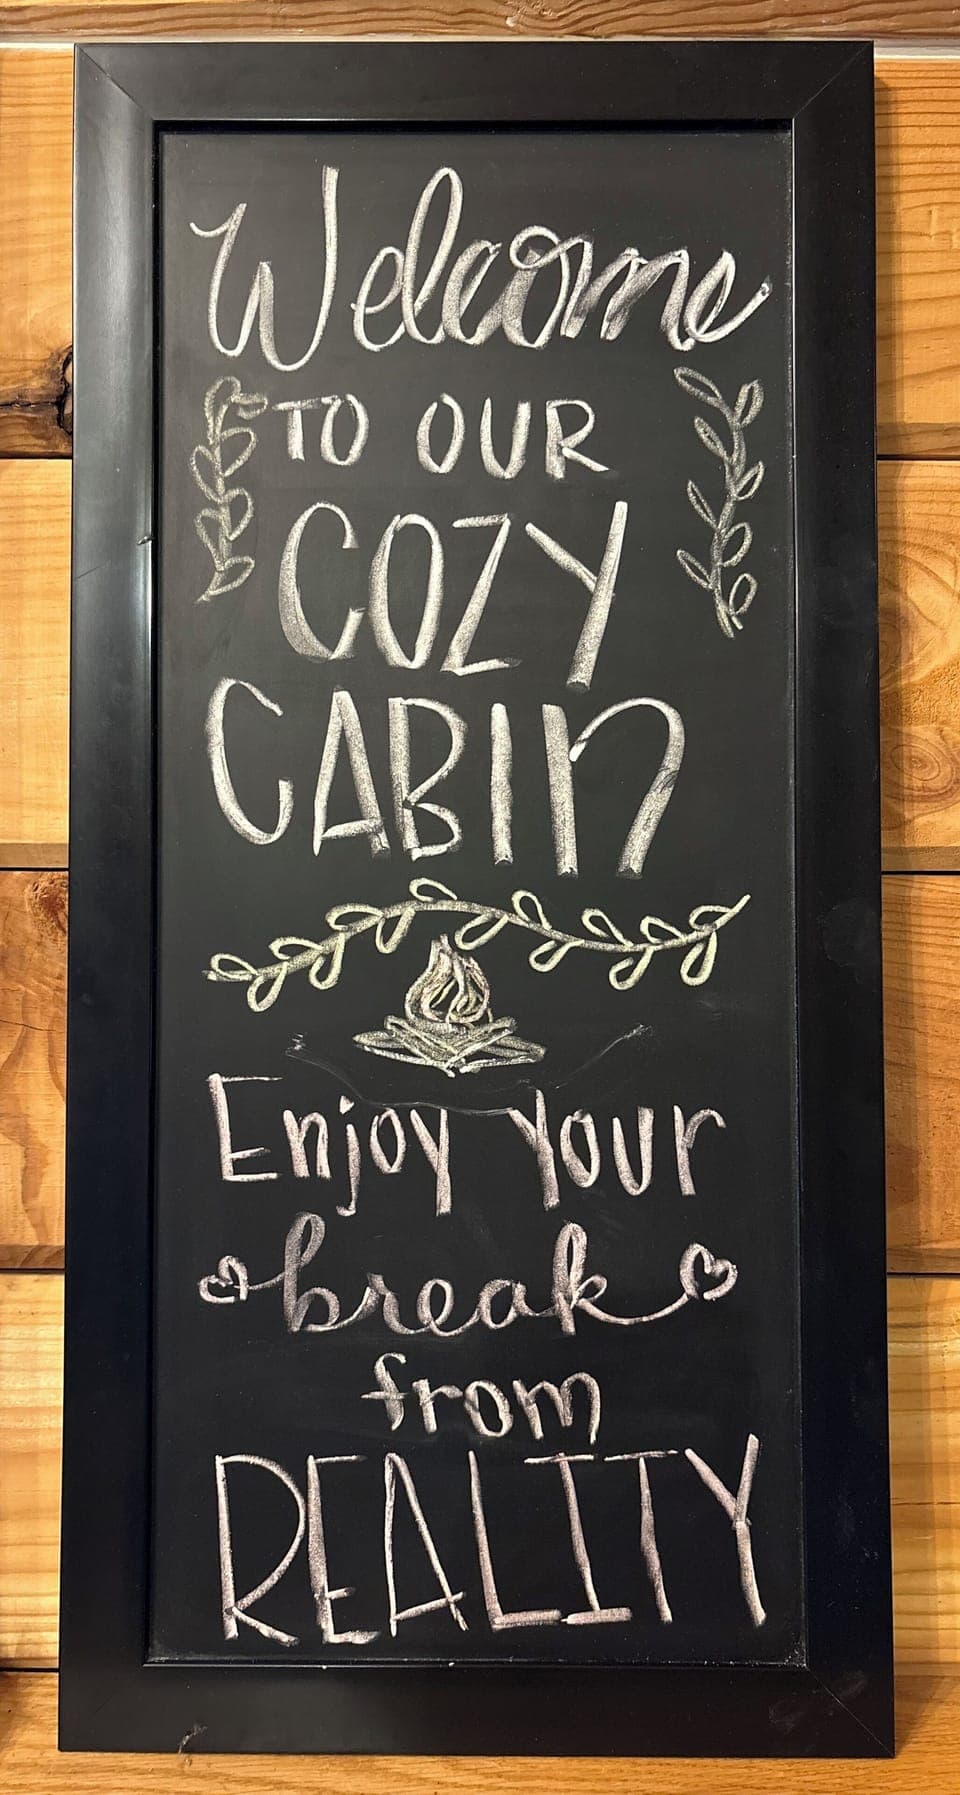 Welcome
TO OUR
COZY
CABIN
Enjoy your
break
from
REALITY